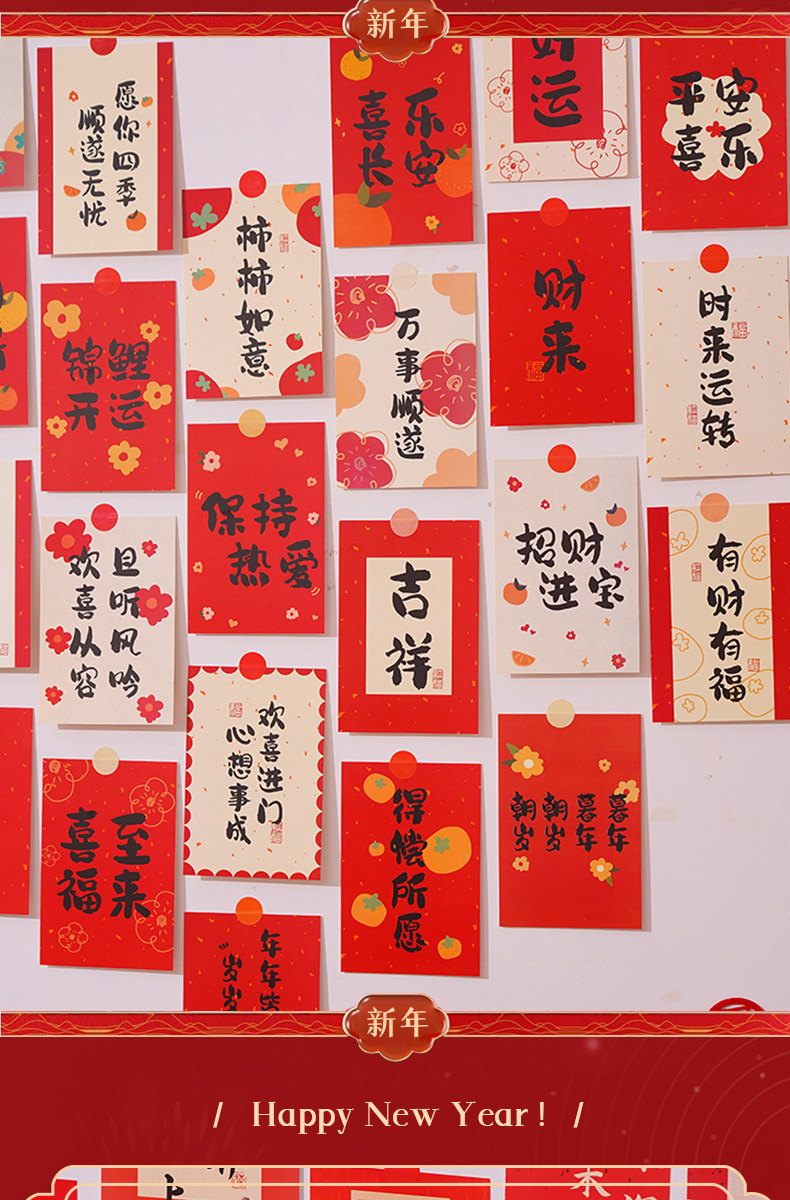 新年
愿你四季
顺遂无忧
喜乐
长安
好运
平安
喜乐
柿柿如意
财来
时来运转
锦鲤
开运
万事顺遂
保持
热爱
招财
进宝
有财有福
且听风吟
欢喜从容
吉祥
欢喜进门
心想事成
朝朝暮暮
岁岁年年
喜至
福来
得偿所愿
年年
岁岁
新年
/ Happy New Year! /